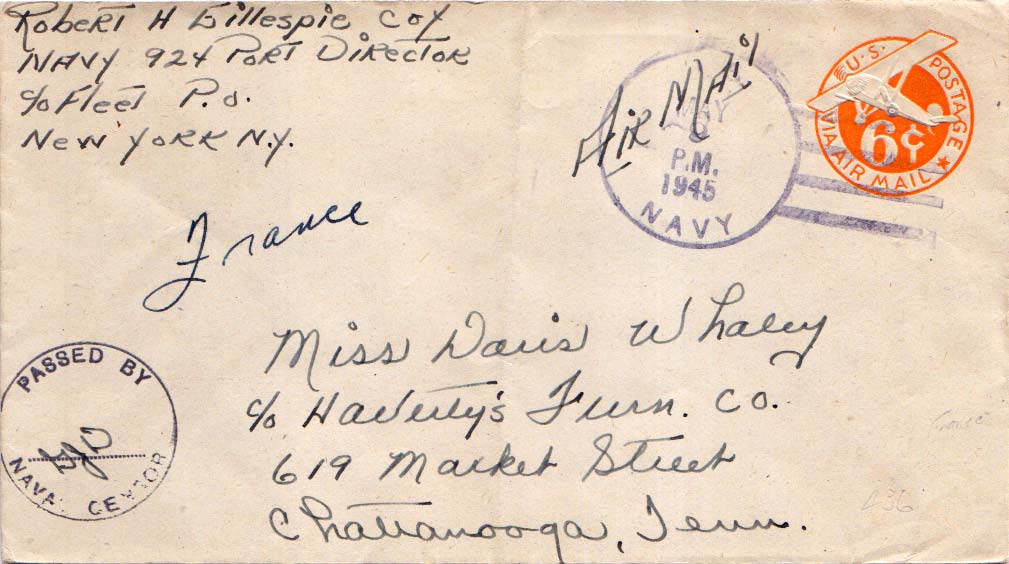 Robert H Gillespie Cox
NAVY 924 Port Director
c/o Fleet P.O.
New York N.Y.
Air Mail
P.M.
1945
NAVY
U.S. POSTAGE
6¢
VIA AIR MAIL
France
PASSED BY
NAVAL CENSOR
Miss Davis Whaley
c/o Haverty's Furn. Co.
619 Market Street
Chattanooga, Tenn.
France